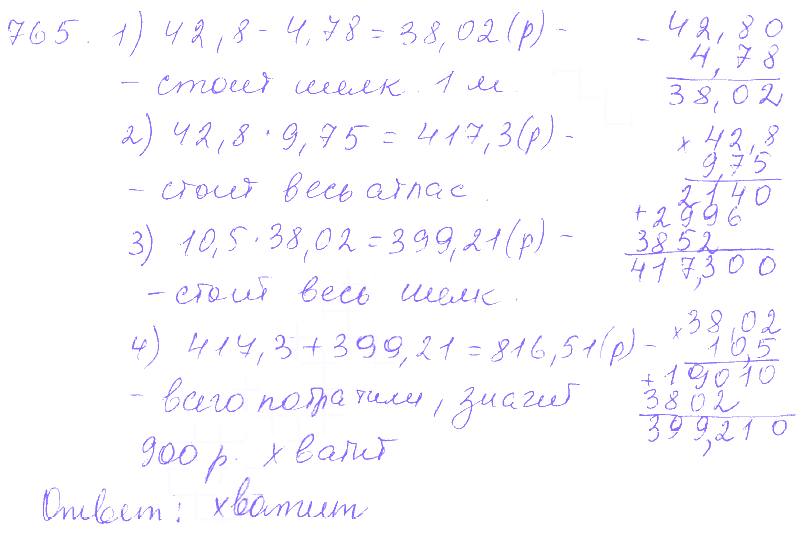 765. 1) 42,8 - 4,78 = 38,02 (р) -
- стоит шелк 1 м.
2) 42,8 · 9,75 = 417,3 (р) -
- стоит весь атлас.
3) 10,5 · 38,02 = 399,21 (р) -
- стоит весь шелк.
4) 417,3 + 399,21 = 816,51 (р) -
- всего потратили, значит
900 р. хватит
Ответ: хватит
- 42,80
4,78
38,02
× 42,8
9,75
2140
+ 2996
3852
417,300
× 38,02
10,5
+ 19010
3802
399,210